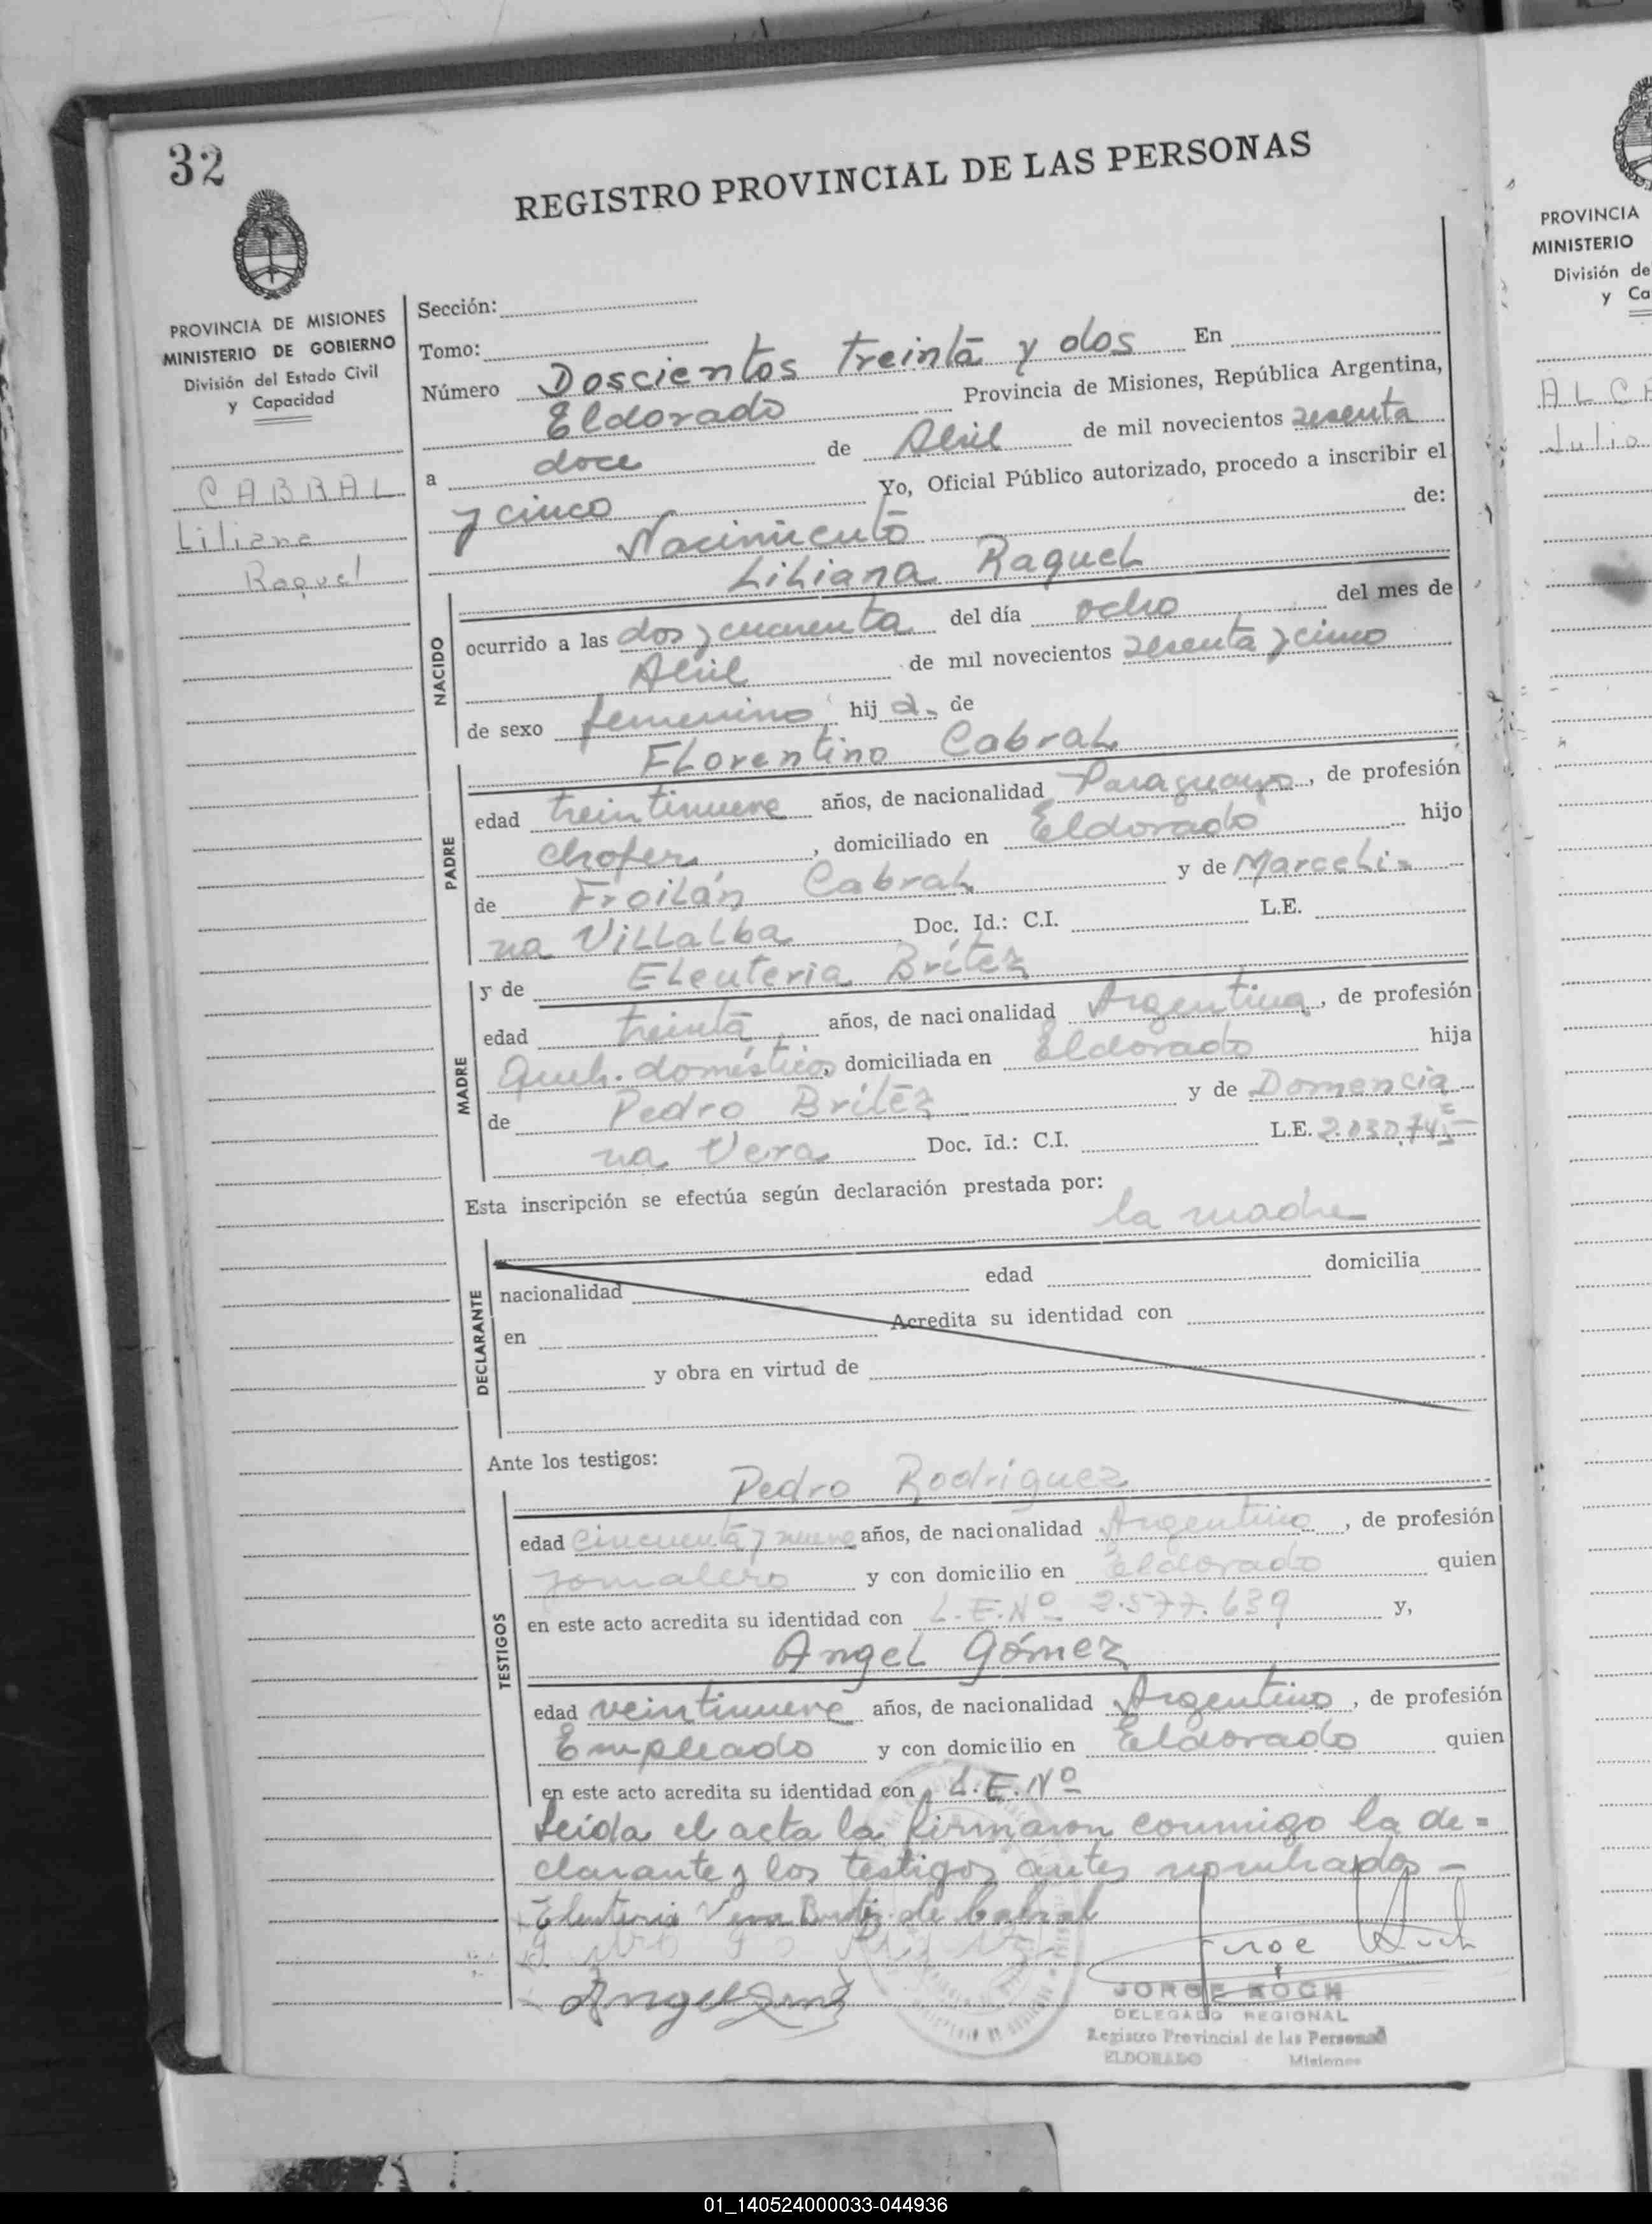 32
REGISTRO PROVINCIAL DE LAS PERSONAS
PROVINCIA DE MISIONES
MINISTERIO DE GOBIERNO
División del Estado Civil
y Capacidad
CABRAL
Liliana
Raquel
Sección:
Tomo:
Número Doscientos treinta y dos En
Eldorado Provincia de Misiones, República Argentina,
a doce de Abril de mil novecientos sesenta
y cinco Yo, Oficial Público autorizado, procedo a inscribir el
Nacimiento de:
Liliana Raquel
NACIDO
ocurrido a las dos y cuarenta del día ocho del mes de
Abril de mil novecientos sesenta y cinco
de sexo femenino hija de
Florentino Cabral
PADRE
edad treintinueve años, de nacionalidad Paraguayo, de profesión
chofer, domiciliado en Eldorado hijo
de Froilán Cabral y de Marceli-
na Villalba Doc. Id.: C.I. L.E.
y de Eleuteria Brítez
MADRE
edad treinta años, de nacionalidad Argentina, de profesión
Queh. doméstico, domiciliada en Eldorado hija
de Pedro Brítez y de Domencia
na Vera Doc. Id.: C.I. L.E.
Esta inscripción se efectúa según declaración prestada por:
la madre
DECLARANTE
nacionalidad edad domicilia
en Acredita su identidad con
y obra en virtud de
Ante los testigos:
Pedro Rodriguez
TESTIGOS
edad cincuenta y nueve años, de nacionalidad Argentino, de profesión
Jornalero y con domicilio en Eldorado quien
en este acto acredita su identidad con L.E.Nº 2.577.639 y,
Angel Gómez
edad veintinueve años, de nacionalidad Argentino, de profesión
Empleado y con domicilio en Eldorado quien
en este acto acredita su identidad con L.E.Nº
Leída el acta la firmaron conmigo la de=
clarante y los testigos antes nombrados -
Eleuteria Vera Britez de Cabral
JORGE KOCH
DELEGADO REGIONAL
Registro Provincial de las Personas
ELDORADO Misiones
PROVINCIA
MINISTERIO
División de
y Ca
Julio
01_140524000033-044936